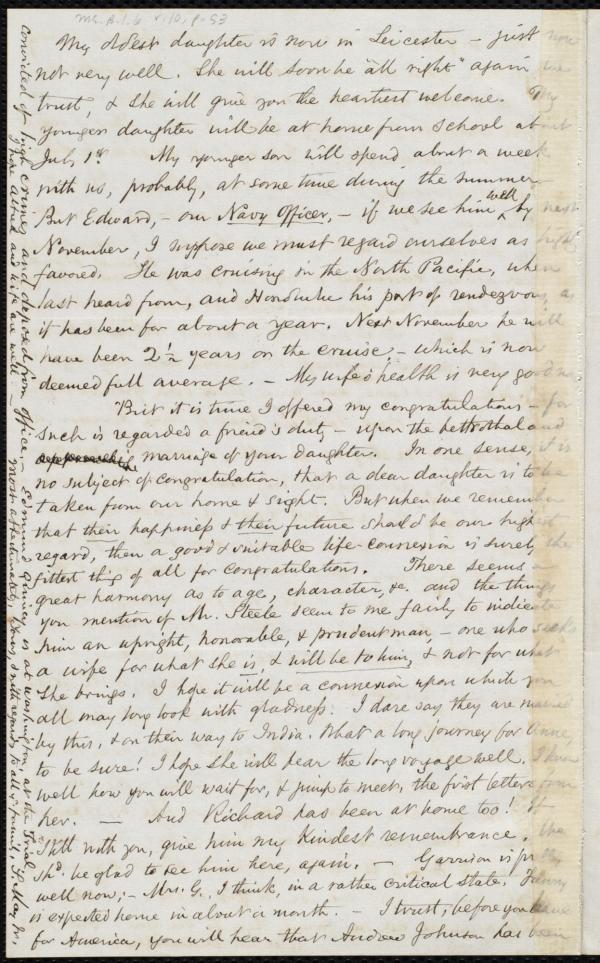 Ms. B.1.6 v.10, p.53
My oldest daughter is now in Leicester – just now
not very well. She will soon be "all right" again we
trust, & she will give you the heartiest welcome. My
younger daughter will be at home from School about
July 1st. My younger son will spend about a week
with us, probably, at some time during the summer.
But Edward, – our Navy Officer, – if we see him well by next
November, I suppose we must regard ourselves as highly
favored. He was cruising in the North Pacific, when
last heard from, and Honolulu his port of rendezvous, as
it has been for about a year. Next November he will
have been 2½ years on the cruise, – which is now
deemed full average. – My wife's health is very good now.
But it is time I offered my congratulations – for
such is regarded a friend's duty – upon the betrothal and
marriage of your daughter. In one sense, it is
no subject of congratulation, that a dear daughter is to be
taken from our home & sight. But when we remember
that their happiness & their future should be our highest
regard, then a good & suitable life-connexion is surely the
fittest thing of all for congratulations. There seems a
great harmony as to age, character, &c. and the things
you mention of Mr. Steele seem to me fairly to indicate
him an upright, honorable, & prudent man, – one who seeks
a wife for what she is, & will be to him, & not for what
she brings. I hope it will be a connexion upon which you
all may long look with gladness. I dare say they are married
by this, & on their way to India. What a long journey for Anne,
to be sure! I hope she will bear the long voyage well. I know
well how you will wait for, & jump to meet, the first letters from
her. — And Richard has been at home too! If
still with you, give him my kindest remembrance. We
shd. be glad to see him here, again. – Garrison is pretty
well now; – Mrs. G., I think, in a rather critical state. Henry
is expected home in about a month. – I trust, before you leave
for America, you will hear that Andrew Johnson has been
convicted of high crimes and deposed from office. – Edmund Quincy is at Washington, at the Trial.
and wife are well. – Most affectionately, Yours, with regards to all yr. family, S. May, Jr.